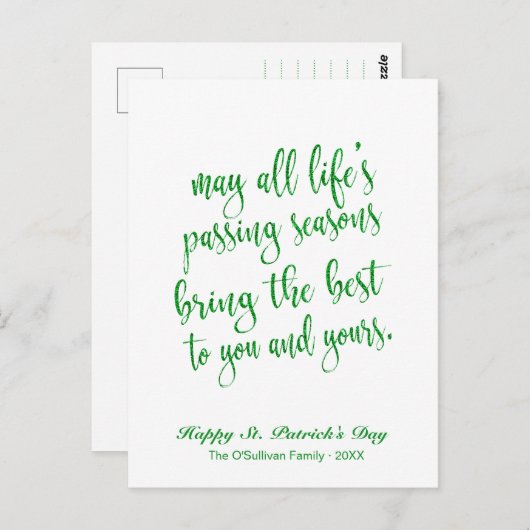 may all life's
passing seasons
bring the best
to you and yours.
Happy St. Patrick's Day
The O'Sullivan Family · 20XX